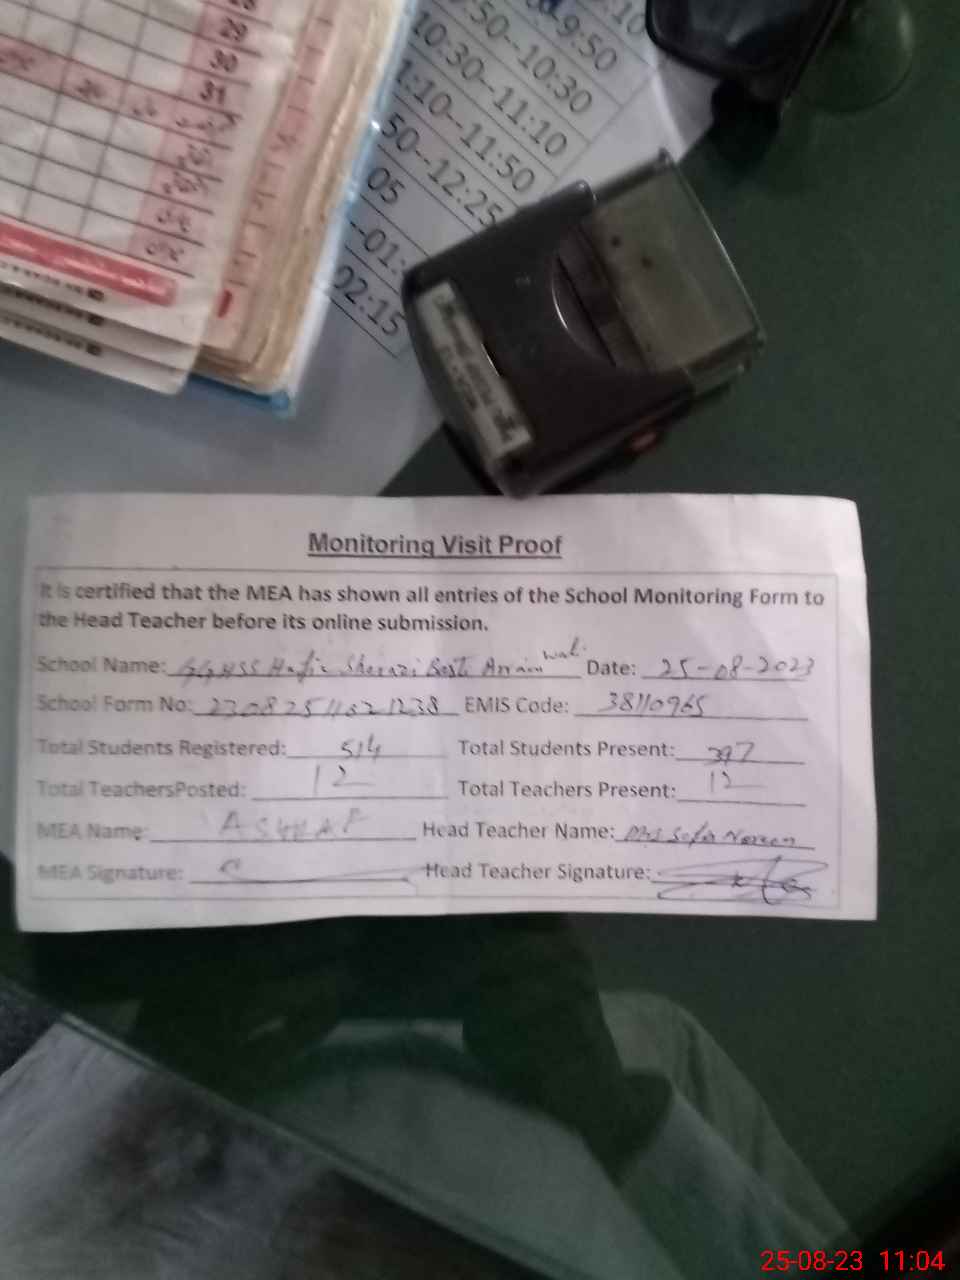 29
30
31
9:50
10:30
10:30--11:10
11:10--11:50
50--12:25
05
--01:
02:15
Monitoring Visit Proof
It is certified that the MEA has shown all entries of the School Monitoring Form to
the Head Teacher before its online submission.
School Name: GGHSS Hafiz Sherazi Basti Arrain wali Date: 25-08-2023
School Form No: EMIS Code: 38110965
Total Students Registered: 514 Total Students Present: 397
Total TeachersPosted: 12 Total Teachers Present: 12
MEA Name: ASHRAF Head Teacher Name: Mrs Sofia Noreen
MEA Signature: Head Teacher Signature:
25-08-23 11:04